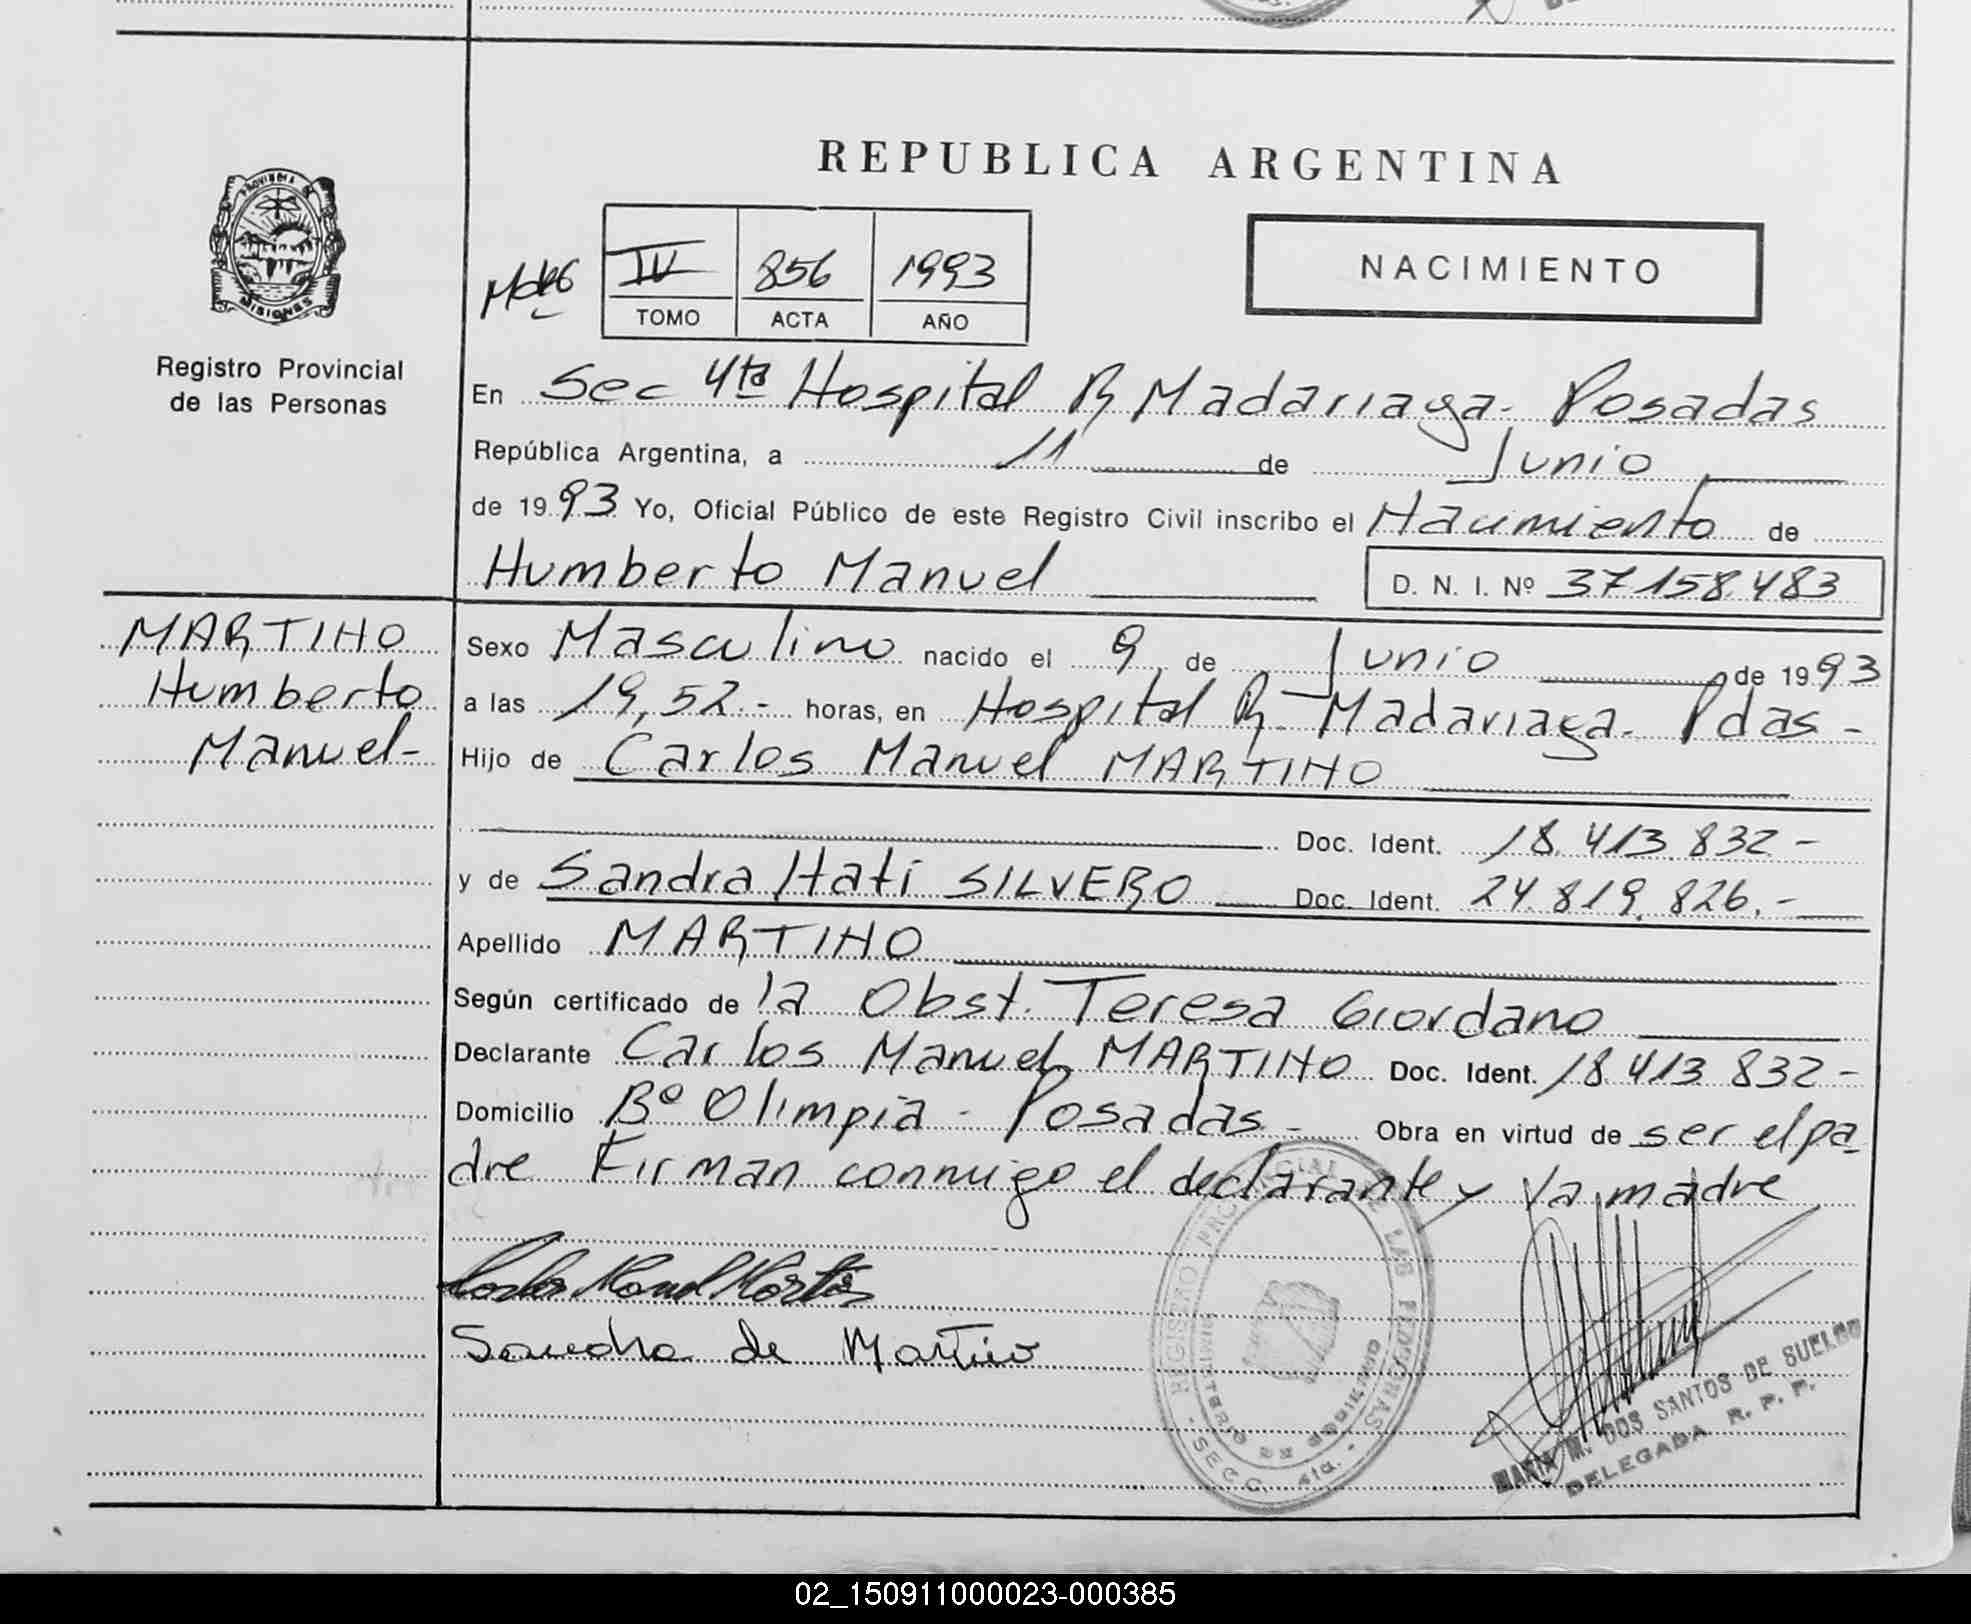 REPUBLICA ARGENTINA
PROVINCIA DE MISIONES
Registro Provincial
de las Personas
IV 856 1993
TOMO ACTA AÑO
NACIMIENTO
En Sec 4ta Hospital R Madariaga - Posadas
República Argentina, a 11 de Junio
de 1993 Yo, Oficial Público de este Registro Civil inscribo el Nacimiento de
Humberto Manuel
D. N. I. Nº 37158.483
MARTINO
Humberto
Manuel-
Sexo Masculino nacido el 9 de Junio de 1993
a las 19,52.- horas, en Hospital R. Madariaga - Pdas -
Hijo de Carlos Manuel MARTINO
Doc. Ident. 18.413.832 -
y de Sandra Nati SILVERO Doc. Ident. 24.819.826.-
Apellido MARTINO
Según certificado de la Obst. Teresa Giordano
Declarante Carlos Manuel MARTINO Doc. Ident. 18.413.832 -
Domicilio Bº Olimpia - Posadas - Obra en virtud de ser el pa
dre Firman conmigo el declarante y la madre
Carlos Manuel Martino
Sandra de Martino
REGISTRO PROVINCIAL DE LAS PERSONAS
MINISTERIO DE GOBIERNO
- SECC. 4ta. -
MARIA M. DOS SANTOS DE SUELDO
DELEGADA R. P. P.
02_150911000023-000385